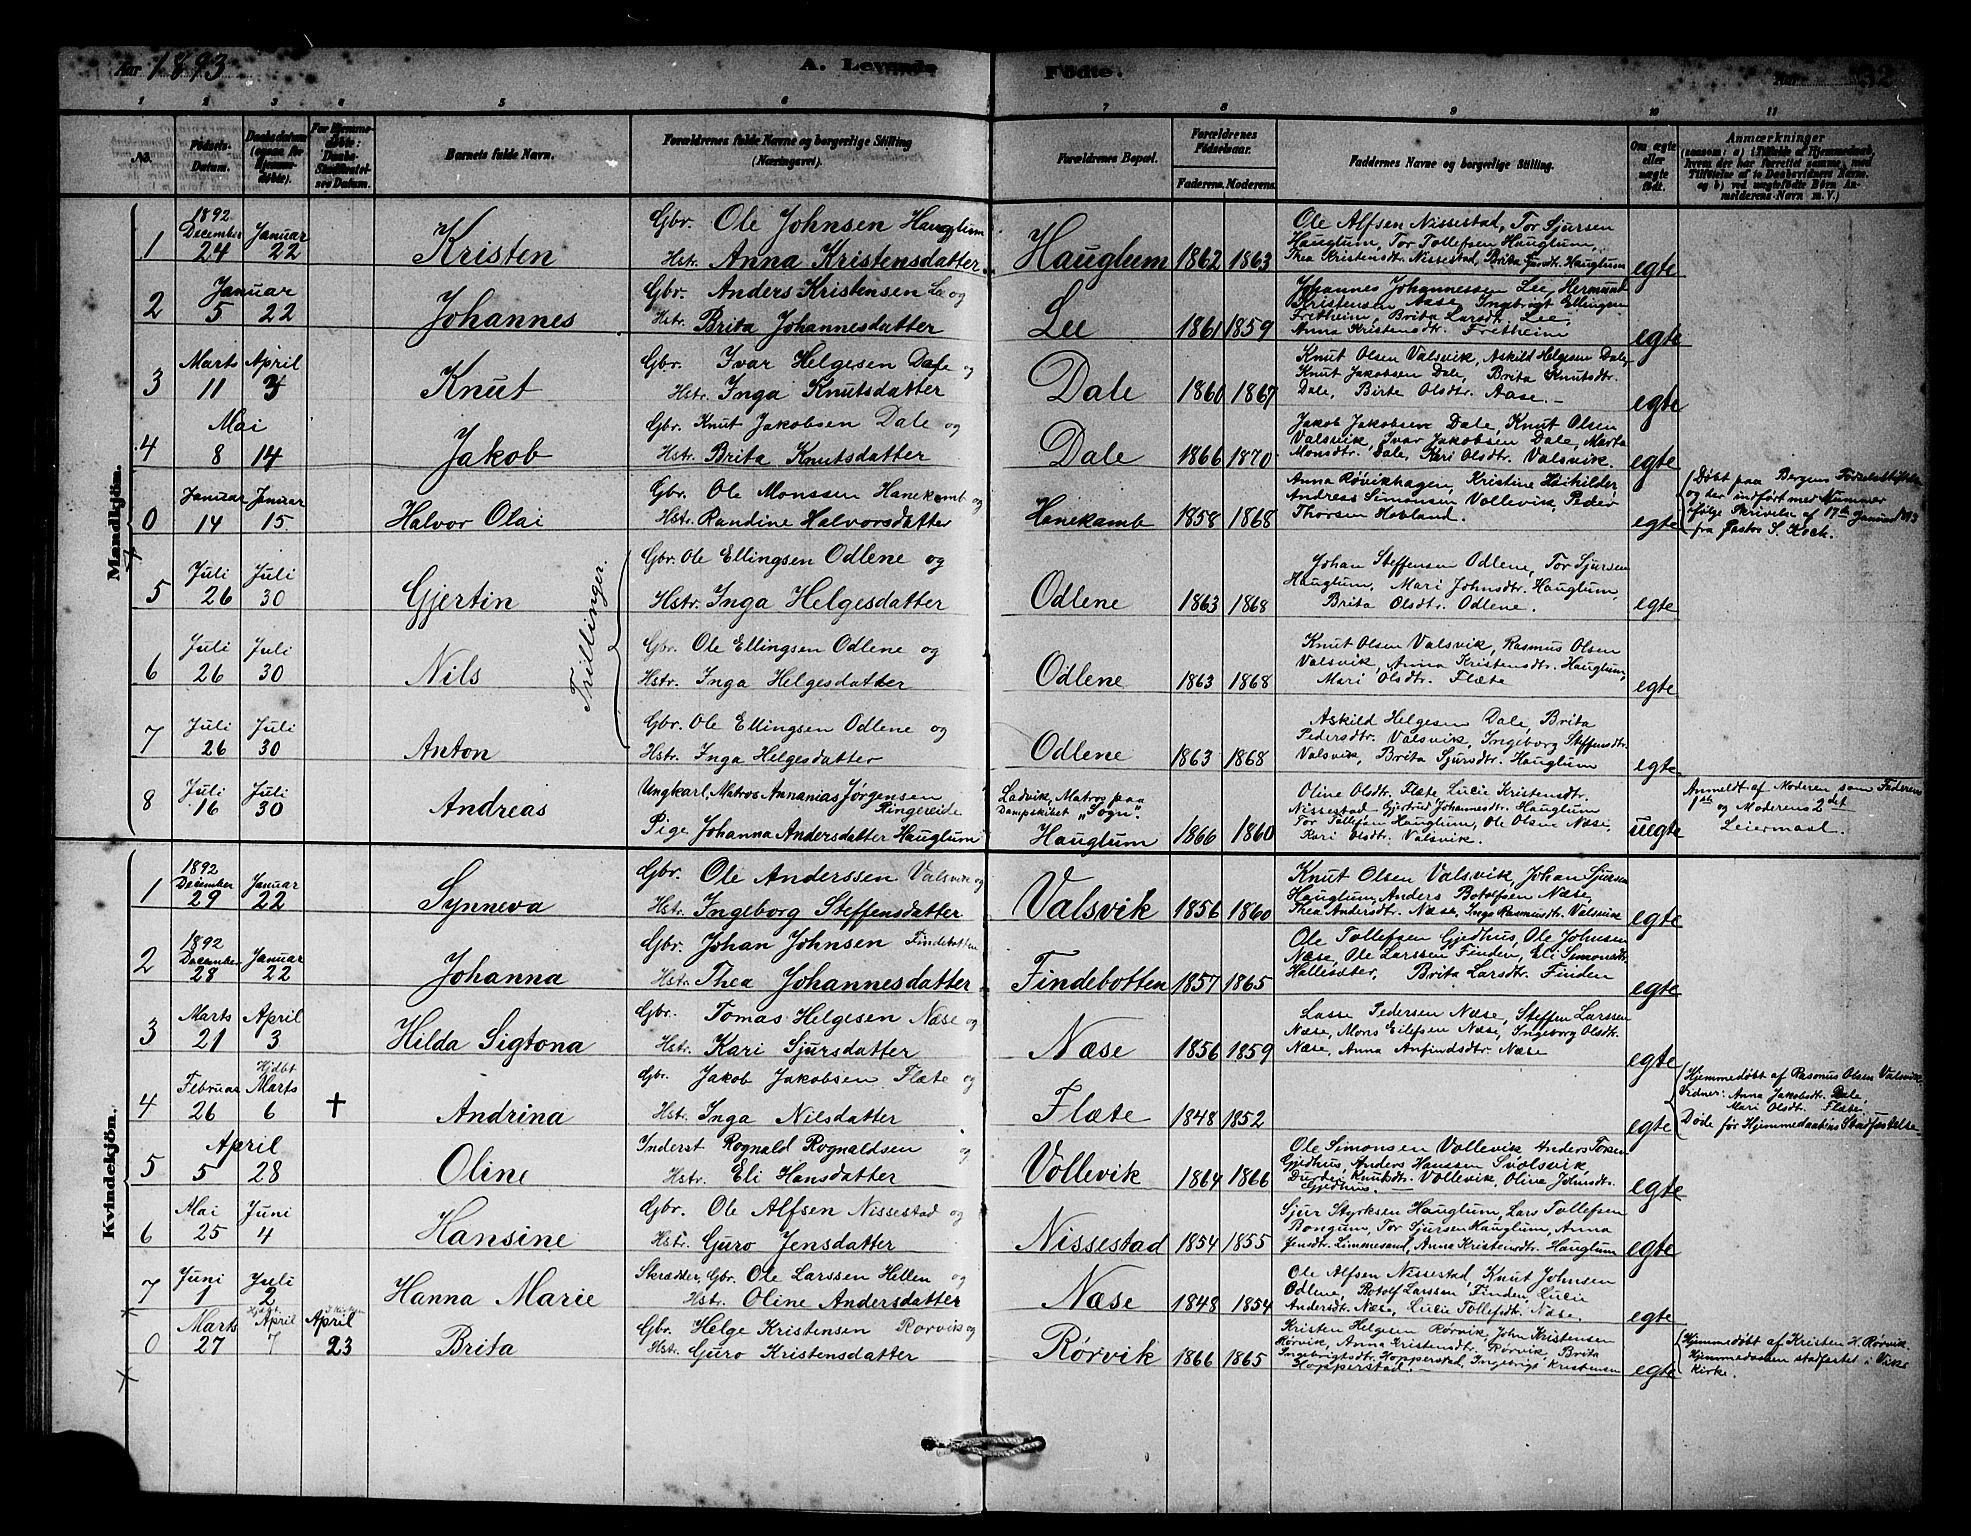 Aar 1893
A. Levende Fødte.
Aar 32
1 2 3 4 5 6 7 8 9 10 11
No. Fødsels-Datum. Daabsdatum (ogsaa for Hjemme-døbte). For Hjemme-døbte: Daabs-Stadfæstel-sens Datum. Barnets fulde Navn. Forældrenes fulde Navne og borgerlige Stilling (Næringsvei). Forældrenes Bopæl. Forældrenes Fødselsaar. Faderens. Moderens. Faddernes Navne og borgerlige Stilling. Om ægte eller uægte født. Anmærkninger
Mandkjøn.
1892
1 December 24 Januar 22 Kristen Gbr. Ole Johnsen Hauglum Hst. Anna Kristensdatter Hauglum 1862 1863 Ole Alfsen Nissestad, Tor Sjursen Hauglum, Tor Tollefsen Hauglum, Thea Kristensdt. Nissestad, Brita Hauglum egte
2 Januar 5 22 Johannes Gbr. Anders Kristensen Lee og Hst. Brita Johannesdatter Lee 1861 1859 Johannes Johannessen Lee, Hermund Kristensen Aase, Ingebrigt Ellingsen Fretheim, Brita Larsdt. Lee, Anna Kristensdt. Fretheim egte
3 Marts 11 April 3 Knut Gbr. Ivar Helgesen Dale og Hstr. Inga Knutsdatter Dale 1860 1867 Knut Olsen Valsvik, Askild Helgesen Dale, Knut Jakobsen Dale, Brita Knutsdtr. Dale, Birte Olsdtr. Aase. egte
4 Mai 8 14 Jakob Gbr. Knut Jakobsen Dale og Hstr. Brita Knutsdatter Dale 1866 1870 Jakob Jakobsen Dale, Knut Olsen Valsvik, Ivar Jakobsen Dale, Marta Monsdtr. Dale, Kari Olsdtr. Valsvik. egte
0 Januar 14 Januar 15 Halvor Olai Gbr. Ole Monssen Hanekamb og Hst. Randine Halvorsdatter Hanekamb 1858 1868 Anna Røvikhagen, Kristine Andreas Simonsen Vollevik, Peder Thorsen Hovland. egte Døbt paa Bergens Fødselsstiftelse og her indført med Nummer ifølge Skrivelse af 17de Januar 1893 fra Pastor S. Koch.
Trillinger.
5 Juli 26 Juli 30 Gjertin Gbr. Ole Ellingsen Odlene og Hstr. Inga Helgesdatter Odlene 1863 1868 Johan Steffensen Odlene, Tor Sjursen Hauglum, Mari Johnsdtr. Hauglum, Brita Olsdtr. Odlene. egte
6 Juli 26 Juli 30 Nils Gbr. Ole Ellingsen Odlene og Hstr. Inga Helgesdatter Odlene 1863 1868 Knut Olsen Valsvik, Rasmus Olsen Valsvik, Anna Kristensdtr. Hauglum, Mari Olsdtr. Flæte egte
7 Juli 26 Juli 30 Anton Gbr. Ole Ellingsen Odlene og Hstr. Inga Helgesdatter Odlene 1863 1868 Askild Helgesen Dale, Brita Pedersdtr. Valsvik, Ingeborg Steffensdtr. Valsvik, Brita Sjursdtr. Hauglum egte
8 Juli 16 Juli 30 Andreas Ungkarl, Matros Annanias Jørgensen Ringereide Pige Johanna Andersdatter Hauglum Ladvik, Matros paa Dampskibet "Sogn". Hauglum 1866 1860 Oline Oldtr. Flæte Lucie Kristensdtr. Nissestad, Gjertrud Johannesdtr. Hauglum Tor Tollefsen Hauglum, Ole Olsen Næse, Kari Olsdtr. Valsvik. uegte Anmeldt af Moderen som Faderens 1ste og Moderens 2det Leiermaal.
Kvindekjøn.
1 1892 December 29 Januar 22 Synneva Gbr. Ole Anderssen Valsvik og Hst. Ingeborg Steffensdatter Valsvik 1856 1860 Knut Olsen Valsvik, Johan Sjursen Hauglum, Anders Botolfsen Næse, Thea Andersdtr. Næse, Inga Rasmusdtr. Valsvik egte
2 1892 December 28 Januar 22 Johanna Gbr. Johan Johnsen Findebotten Hst. Thea Johannesdatter Findebotten 1857 1865 Ole Tollefsen Gjedhus, Ole Johnsen Næse, Ole Larssen Finden, Eli Simonsdt. Hallesæter, Brita Larsdt. Finden egte
3 Marts 21 April 3 Hilda Sigtona Gbr. Tomas Helgesen Næse og Hst. Kari Sjursdatter Næse 1856 1859 Lasse Pedersen Næse, Steffen Larssen Næse, Mons Eilefsen Næse, Ingeborg Olsdt. Næse, Anna Anfindsdtr. Næse egte
4 Februar 26 Hjdbt Marts 6 † Andrina Gbr. Jakob Jakobsen Flæte og Hst. Inga Nilsdatter Flæte 1848 1852 egte Hjemmedøbt af Rasmus Olsen Valsvik Vidner: Anna Jakobsdt. Dale, Mari Olsdt. Flæte. Døde før Hjemmedaabens Stadfæstelse
5 April 5 28 Oline Inderst Rognald Rognaldsen og Hstr. Eli Hansdatter Vollevik 1864 1866 Ole Simonsen Vollevik Anders Torsen Gjedhus, Anders Hanssen Svolsvik, Durtei Knutsdt. Vollevik, Oline Johnsdt. Gjedhus. egte
6 Mai 25 Juni 4 Hansine Gbr. Ole Alfsen Nissestad og Hst. Guro Jensdatter Nissestad 1854 1855 Sjur Styrksen Hauglum, Lars Tollefsen Bongum, Tor Sjursen Hauglum, Anna Jensdtr. Limmesand, Anna Kristensdtr. Hauglum egte
7 Juni 1 Juli 2 Hanna Marie Skrædder, Gbr. Ole Larssen Hellen og Hst. Oline Andersdatter Næse 1848 1854 Ole Alfsen Nissestad, Knut Johnsen Odlene, Botolf Larssen Finden, Lucie Andersdtr. Næse, Lucie Tollefsdtr. Næse. egte
0 Marts 27 Hjdbt. April 7 April 23 Brita Gbr. Helge Kristensen Rørvik og Hst. Guro Kristensdatter Rørvik 1866 1865 Kristen Helgesen Rørvik, John Kristensen Rørvik, Anna Kristensdtr. Rørvik, Brita Ingebrigtsdtr. Hopperstad, Ingebrigt Kristensen Hopperstad. egte Hjemmedøbt af Kristen H. Rørvik. Hjemmedaaben stadfæstet i Viks Kirke.